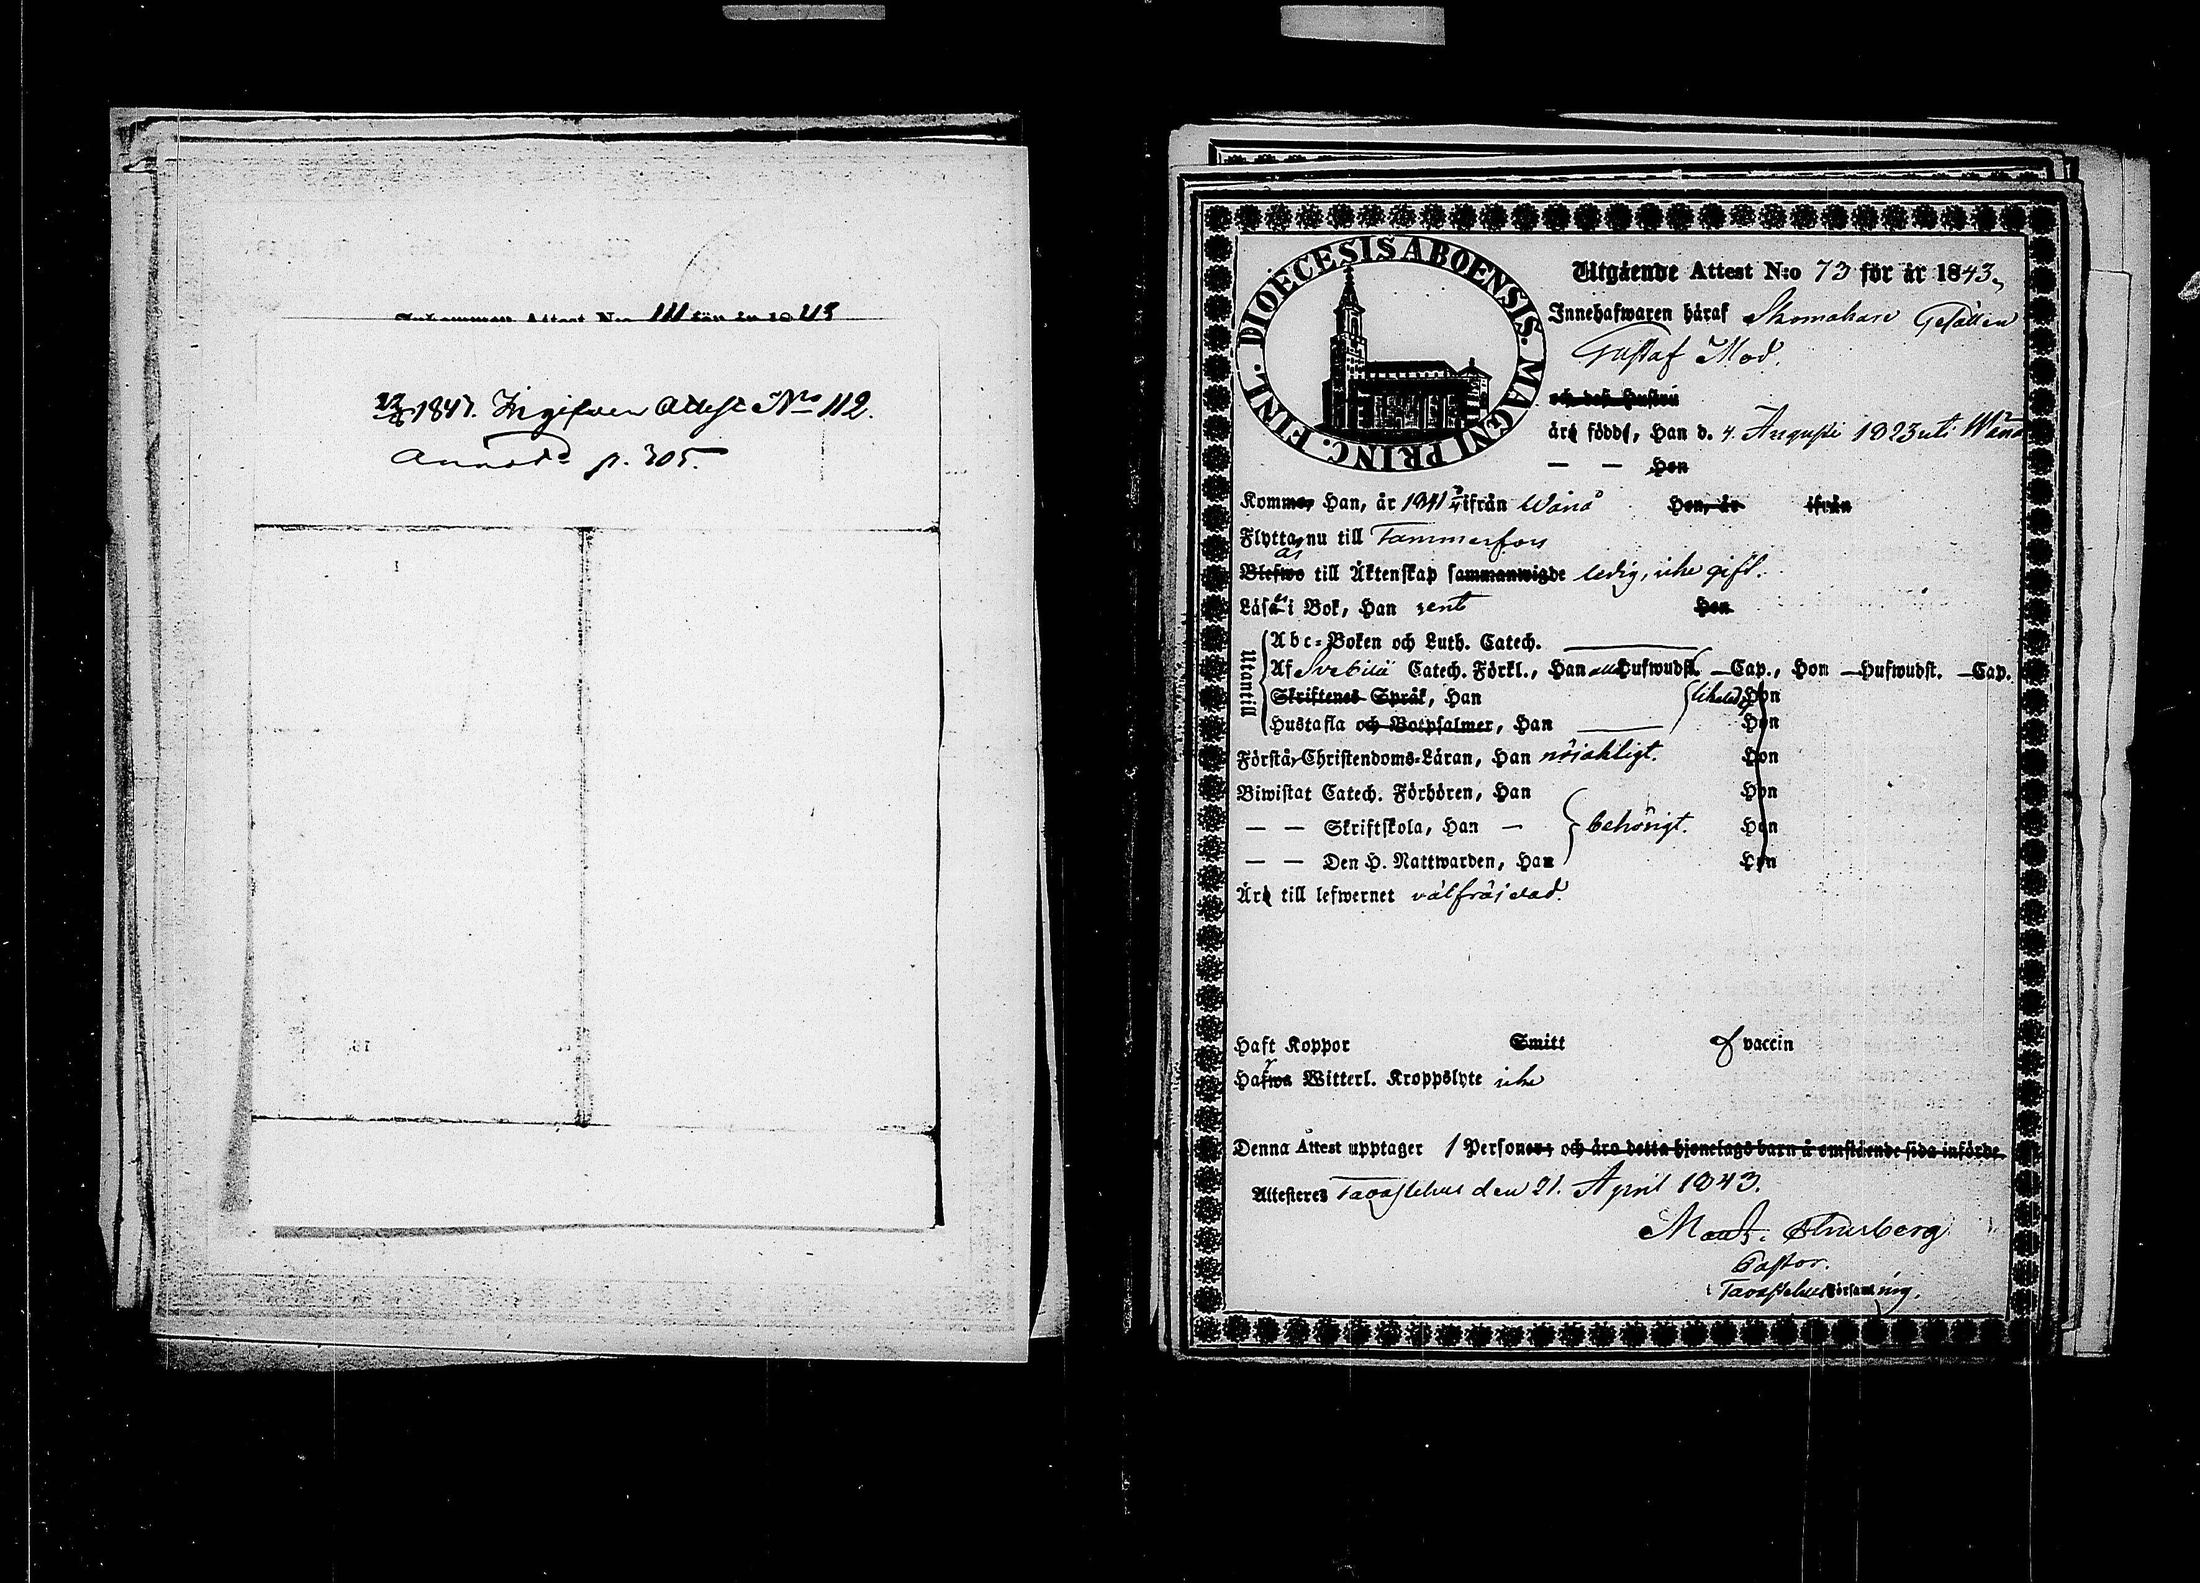 111 för år 1843
1843. Ingifven Attest No 112.
p. 305.
DIOECESIS ABOENSIS. MAGNI PRINC. FINL.
Utgående Attest N:o 73 för år 1843,
Innehafwaren häraf Skomakare Gesällen
Gustaf Mod.
och dess Hustru
äro född, Han d. 4. Augusti 1823 uti Wånå
— — Hon
Kommer Han, år 1841 ifrån Wånå Hon, år ifrån
Flytta nu till Tammerfors
är
Blefwo till Äktenskap sammanwigde ledig, icke gift.
Läsa i Bok, Han rent Hon
Utantill
Abc-Boken och Luth. Catech. ———
Af Svebilii Catech. Förkl., Han alla Hufwudst. —Cap., Hon —Hufwudst. —Cap.
Skriftenes Språk, Han Hon
Hustafla och Botpsalmer, Han ——— Hon
Förstå Christendoms-Läran, Han nöjaktigt. Hon
Biwistat Catech. Förhören, Han Hon
— — Skriftskola, Han — behörigt. Hon
— — Den H. Nattwarden, Han Hon
Äro till lefwernet välfräjdad.
Haft Koppor Smitt vaccin
Hafwa Witterl. Kroppslyte icke
Denna Attest upptager 1 Personer; och äro detta hjonelags barn å omstående sida införde.
Attesteres Tavastehus den 21. April 1843.
Pastor.
i Tavastehus Församling.